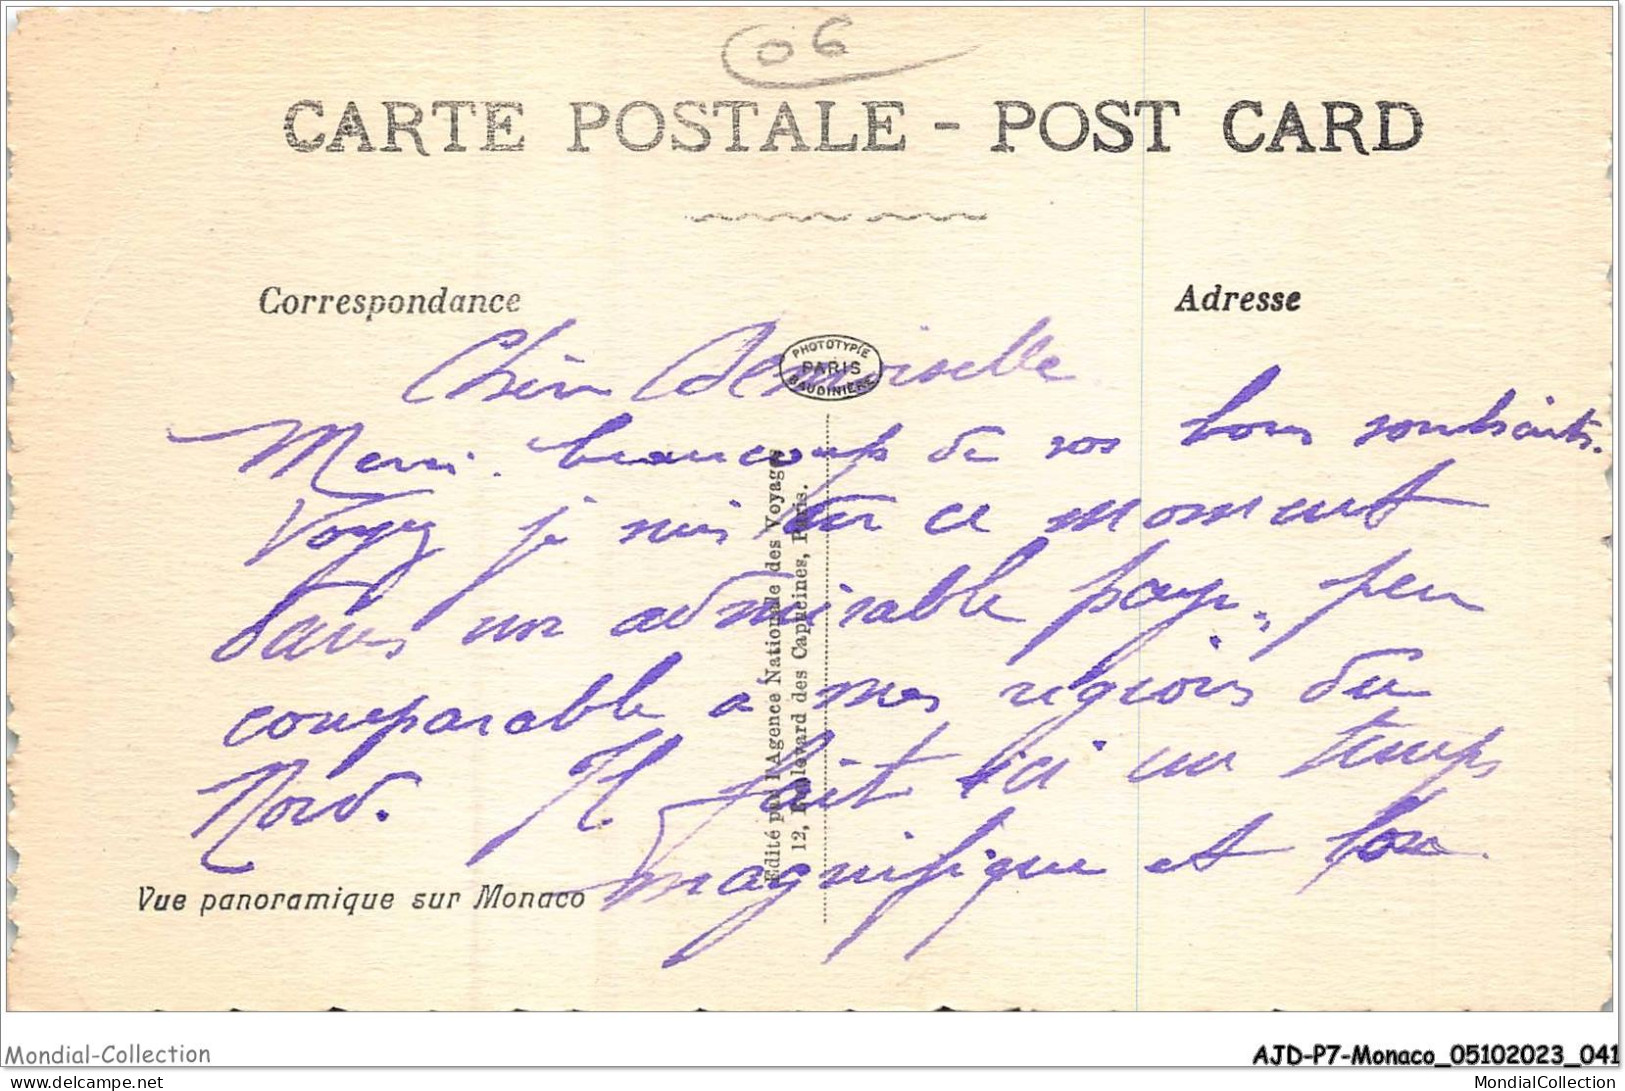 06
CARTE POSTALE - POST CARD
Correspondance
Adresse
PHOTOTYPIE
PARIS
BAUDINIÈRE
Chère Demoiselle
Merci beaucoup de vos bons souhaits.
Voyez je suis en ce moment
dans un admirable pays, peu
comparable a mes régions du
Nord. Il fait ici un temps
magnifique et
Edité par l'Agence Nationale des Voyages
12, Boulevard des Capucines, Paris.
Vue panoramique sur Monaco
Mondial-Collection
AJD-P7-Monaco_05102023_041
https://www.delcampe.net
MondialCollection